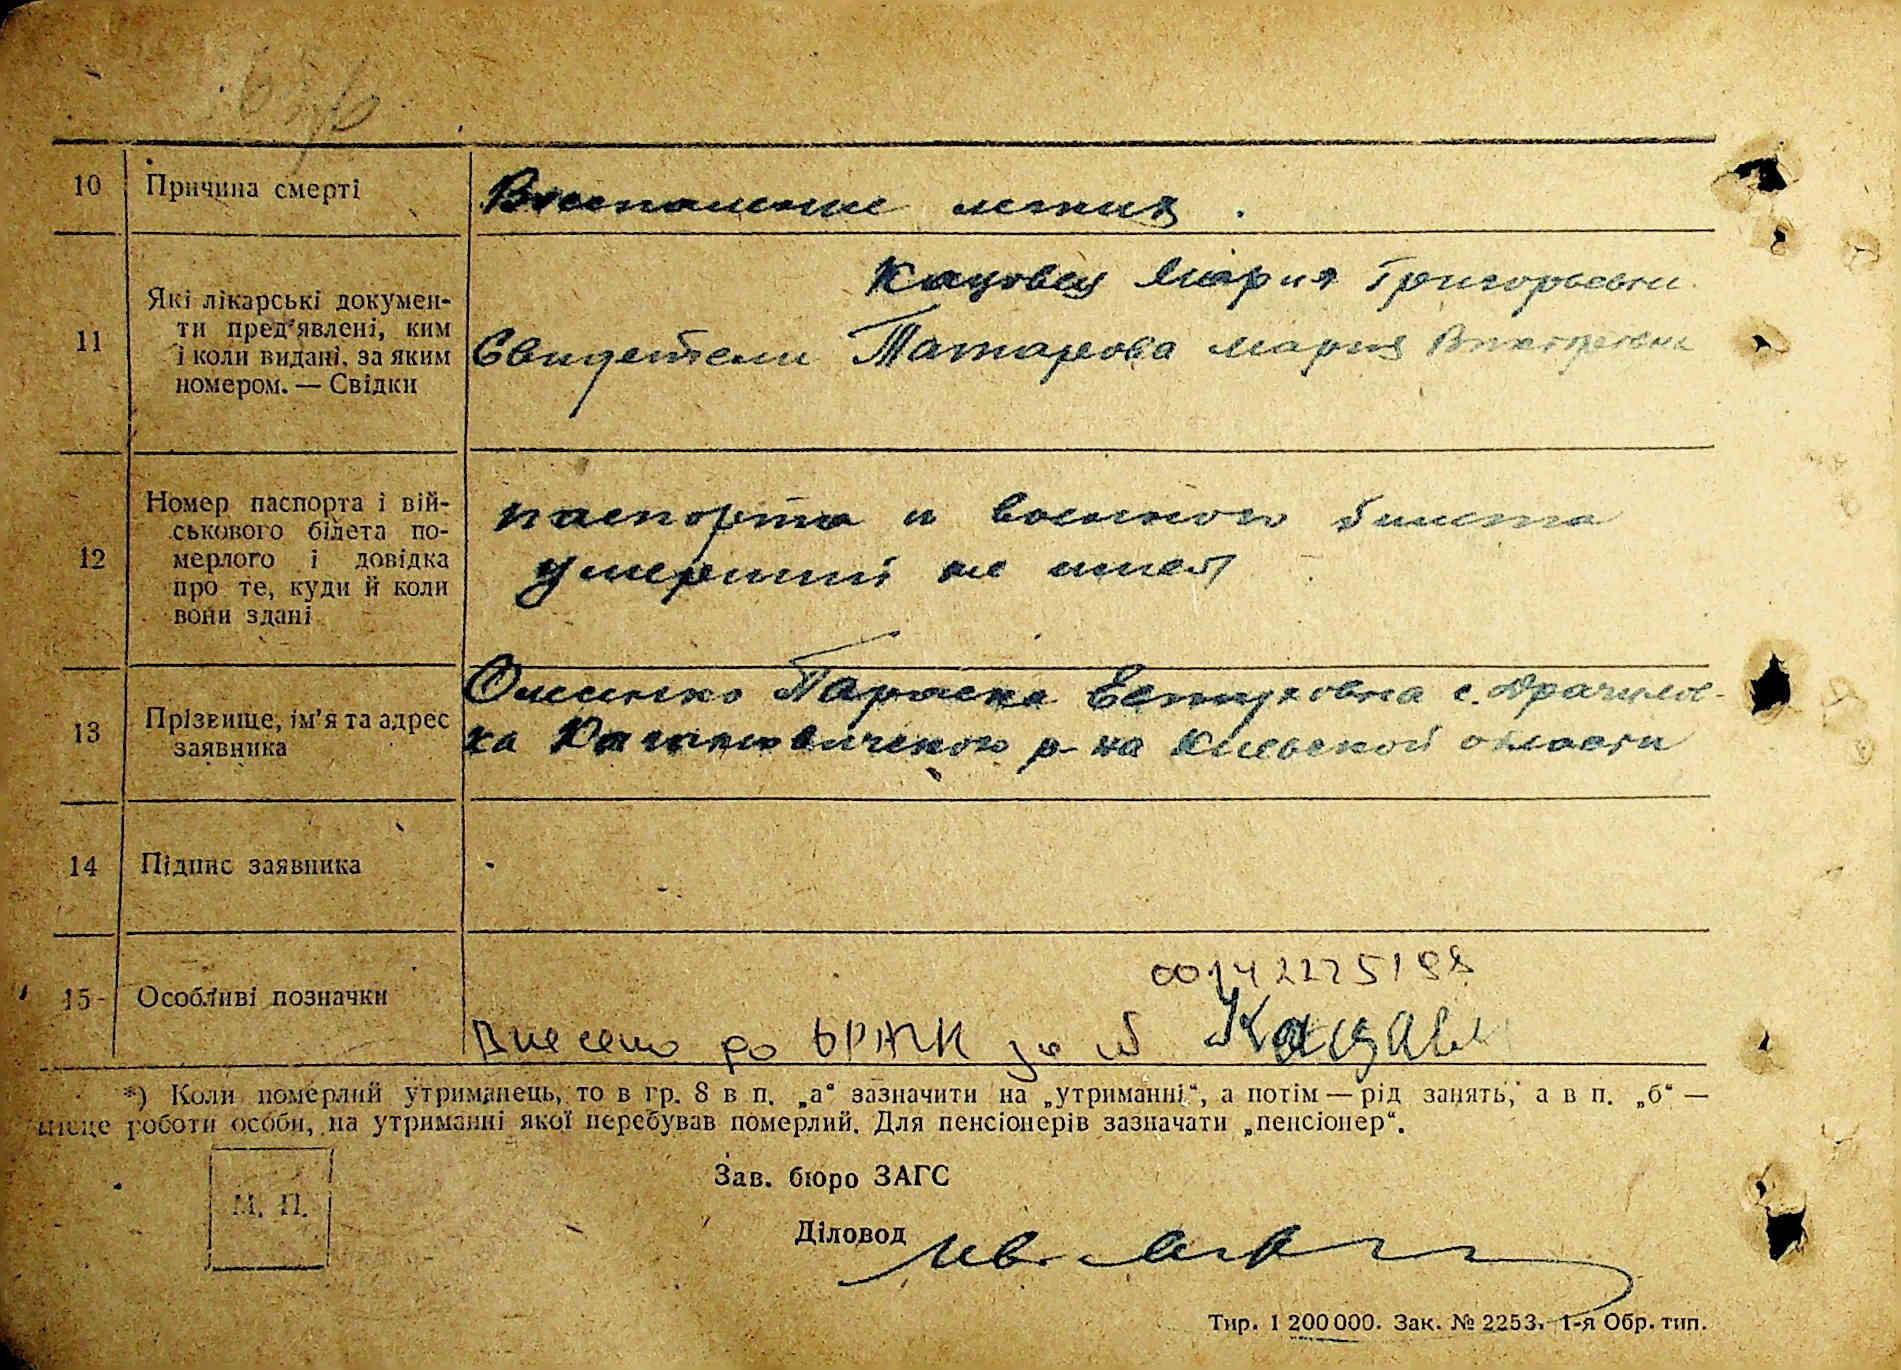 10 Причина смерті Воспаление легких.
11 Які лікарські докумен-
ти пред'явлені, ким
і коли видані, за яким
номером. — Свідки
Кацовец Мария Григорьевна
Свидетели Татарова Мария
12 Номер паспорта і вій-
ськового білета по-
мерлого і довідка
про те, куди й коли
вони здані
паспорта и военного билета
умерший не имел
13 Прізвище, ім'я та адрес
заявника
Параска с.
р-на Киевской области
14 Підпис заявника
15 Особливі позначки
00142225198
Внесено до
*) Коли померлий утриманець, то в гр. 8 в п. „а“ зазначити на „утриманні“, а потім — рід занять, а в п. „б“ —
місце роботи особи, на утриманні якої перебував померлий. Для пенсіонерів зазначати „пенсіонер“.
М. П.
Зав. бюро ЗАГС
Діловод
Тир. 1 200 000. Зак. № 2253. 1-я Обр. тип.